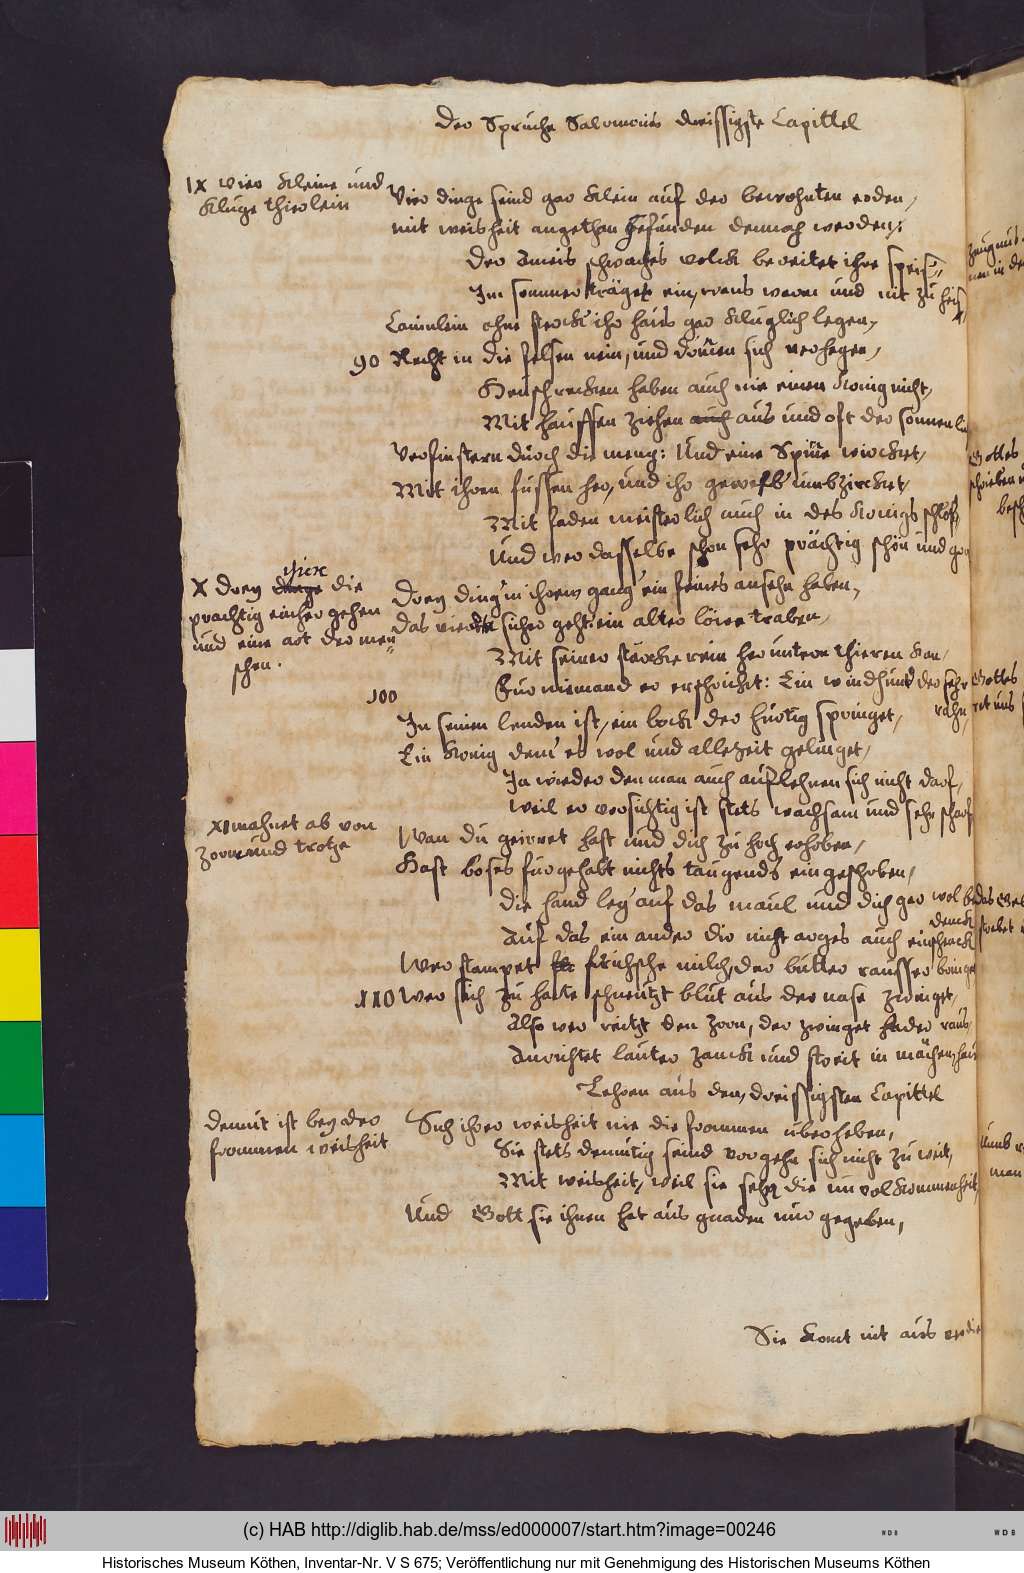 Der Spruche Salomonis dreissigste Capittel
IX vier kleine und
kluge thierlein
Vier dinge seind gar klein auf der bewohnten erden,
mit weisheit angethan gefunden dennoch werden:
Der Ameis schwaches volck bereitet ihre speis
Im sommer träget ein, wans warm und nit zu heis,
Caninlein ohne sterck ihr haus gar kluglich legen,
90 Recht in die felsen nein, und dorinen sich verhegen,
Heuschrecken haben auch nie einen Konig nicht,
Mit hauffen ziehen auch aus und oft der sonnen
Verfinstern durch die meng: Und eine Spinne wircket,
Mit ihren fussen her, und ihr geweb umbzircket,
Mit faden meisterlich auch in des Konigs schlos,
Und wer dasselbe schon sehr prächtig schön und
X Drey dinge vier die
prachtig einher gehen
und eine art der men
schen.
Drey ding in ihrem gang ein feines ansehn haben,
das vierdte sicher geht: ein alter löwe traben,
Mit seiner stercke rein her untern thieren kan,
100 Fur niemand er erschrickt: Ein windhund der sehr
rahn,
In seinen lenden ist, ein bock der hurtig springet,
Ein Konig dem es wol und allezeit gelinget,
Ja wieder den man auch auflehnen sich nicht darf,
Weil er vorsichtig ist stets wachsam und sehr scharf
XI mahnet ab von
Zorn und trotze
Wan du geirret hast und dich zu hoch erhoben,
Hast boses furgehabt nichts taugends eingeschoben,
die hand leg auf das maul und dich gar wol be
denck
Auf das ein ander dir nicht arges auch einschenck
Wer stampet frische milch, der butter rausser bringet
110 Wer sich zu harte schneutzt blut aus der nase zwinget,
Also wer reitzt den zorn, der zwinget hader raus,
Anrichtet lauter zanck und streit in mächem haus
Lehren aus dem, dreissigsten Capittel
Demut ist bey der
frommen weisheit
Sich ihrer weisheit nie die frommen uberheben,
Sie stets demutig seind vorgehn sich nicht zu weit,
Mit weisheit, weil sie sehn die unvolkommenheit,
Und Gott sie ihnen hat aus gnaden nur gegeben,
Sie komt nit aus
(c) HAB http://diglib.hab.de/mss/ed000007/start.htm?image=00246
WDB
WDB
Historisches Museum Köthen, Inventar-Nr. V S 675; Veröffentlichung nur mit Genehmigung des Historischen Museums Köthen